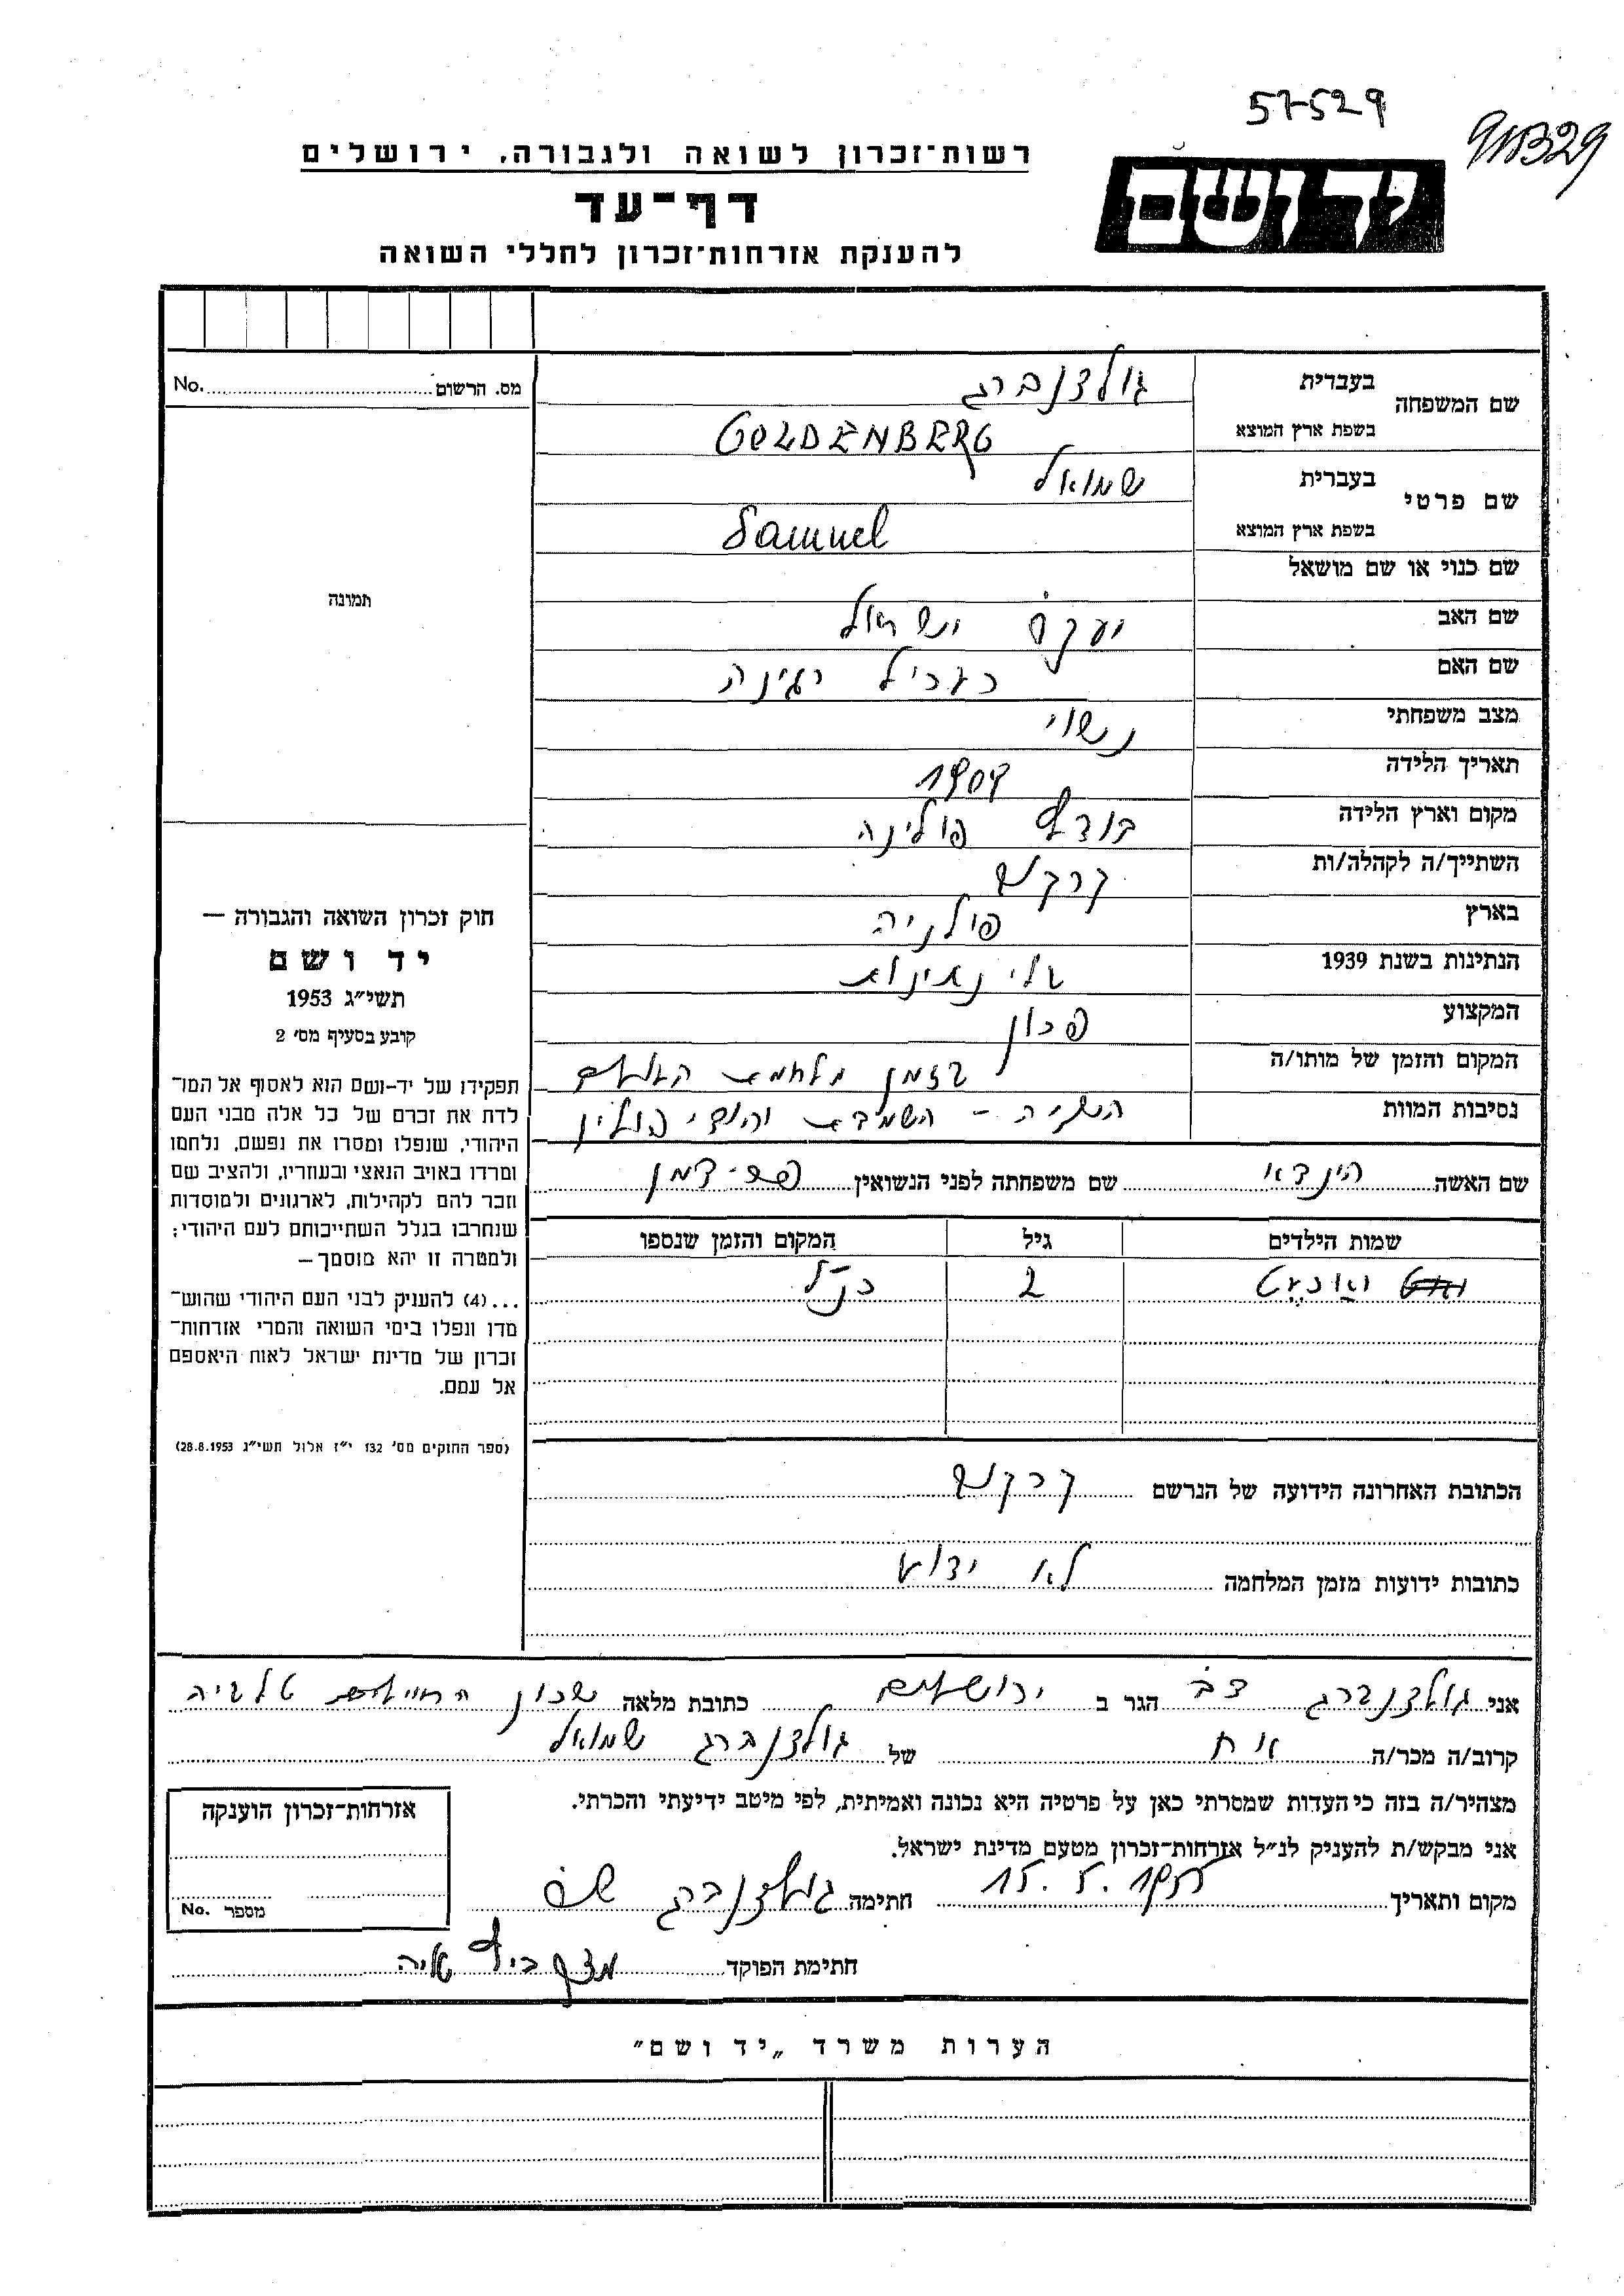 57-529
רשות־זכרון לשואה ולגבורה, ירושלים
יד ושם
דף־עד
להענקת אזרחות־זכרון לחללי השואה
מס. הרשום No.
תמונה
שם המשפחה בעברית גולדנברג
בשפת ארץ המוצא GOLDENBERG
שם פרטי בעברית שמואל
בשפת ארץ המוצא Samuel
שם כנוי או שם מושאל
שם האב יעקב ישראל
שם האם רגינה
מצב משפחתי נשוי
תאריך הלידה
מקום וארץ הלידה
השתייך/ה לקהלה/ות קרקוב
בארץ פולניה
הנתינות בשנת 1939 בלי נתינות
המקצוע
המקום והזמן של מותו/ה בזמן מלחמת העולם
נסיבות המוות השניה - השמדת יהודי פולין
שם האשה הינדא שם משפחתה לפני הנשואין
שמות הילדים גיל המקום והזמן שנספו
2 כנ"ל
הכתובת האחרונה הידועה של הנרשם קרקוב
כתובות ידועות מזמן המלחמה לא ידוע
חוק זכרון השואה והגבורה —
יד ושם
תשי״ג 1953
קובע בסעיף מס׳ 2
תפקידו של יד-ושם הוא לאסוף אל המו־
לדת את זכרם של כל אלה מבני העם
היהודי, שנפלו ומסרו את נפשם, נלחמו
ומרדו באויב הנאצי ובעוזריו, ולהציב שם
וזכר להם לקהילות, לארגונים ולמוסדות
שנחרבו בגלל השתייכותם לעם היהודי;
ולמטרה זו יהא מוסמך—
...(4) להעניק לבני העם היהודי שהוש־
מדו ונפלו בימי השואה והמרי אזרחות־
זכרון של מדינת ישראל לאות היאספם
אל עמם.
(ספר החוקים מס׳ 132 י״ז אלול תשי״ג 28.8.1953)
אני גולדנברג דב הגר ב ירושלים כתובת מלאה שכון טלביה
קרוב/ה מכר/ה אח של גולדנברג שמואל
מצהיר/ה בזה כי העדות שמסרתי כאן על פרטיה היא נכונה ואמיתית, לפי מיטב ידיעתי והכרתי.
אני מבקש/ת להעניק לנ״ל אזרחות־זכרון מטעם מדינת ישראל.
מקום ותאריך 15.5.1955 חתימה גולדנברג
חתימת הפוקד
אזרחות־זכרון הוענקה
מספר No.
הערות משרד „יד ושם״